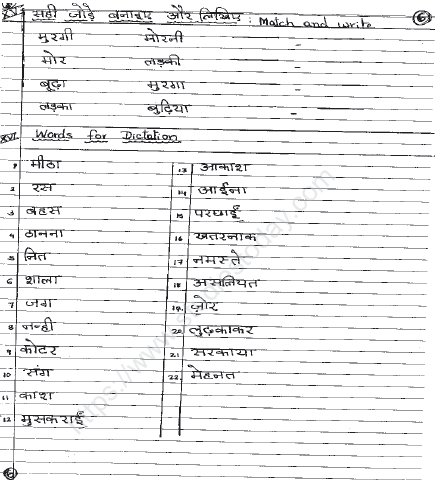 XV सही जोड़े बनाइए और लिखिए : Match and write
6
मुरगी मोरनी –
मोर लड़की –
बूढ़ा मुरगा –
लड़का बुढ़िया –
XVI Words for Dictation
1 मीठा
2 रस
3 बहस
4 ठानना
5 नित
6 शाला
7 जग
8 नन्ही
9 कोटर
10 संग
11 काश
12 मुसकराई
13 आकाश
14 आईना
15 परछाई
16 खतरनाक
17 नमस्ते
18 असलियत
19 ज़ोर
20 लुढ़काकर
21 सरकाया
22 मेहनत